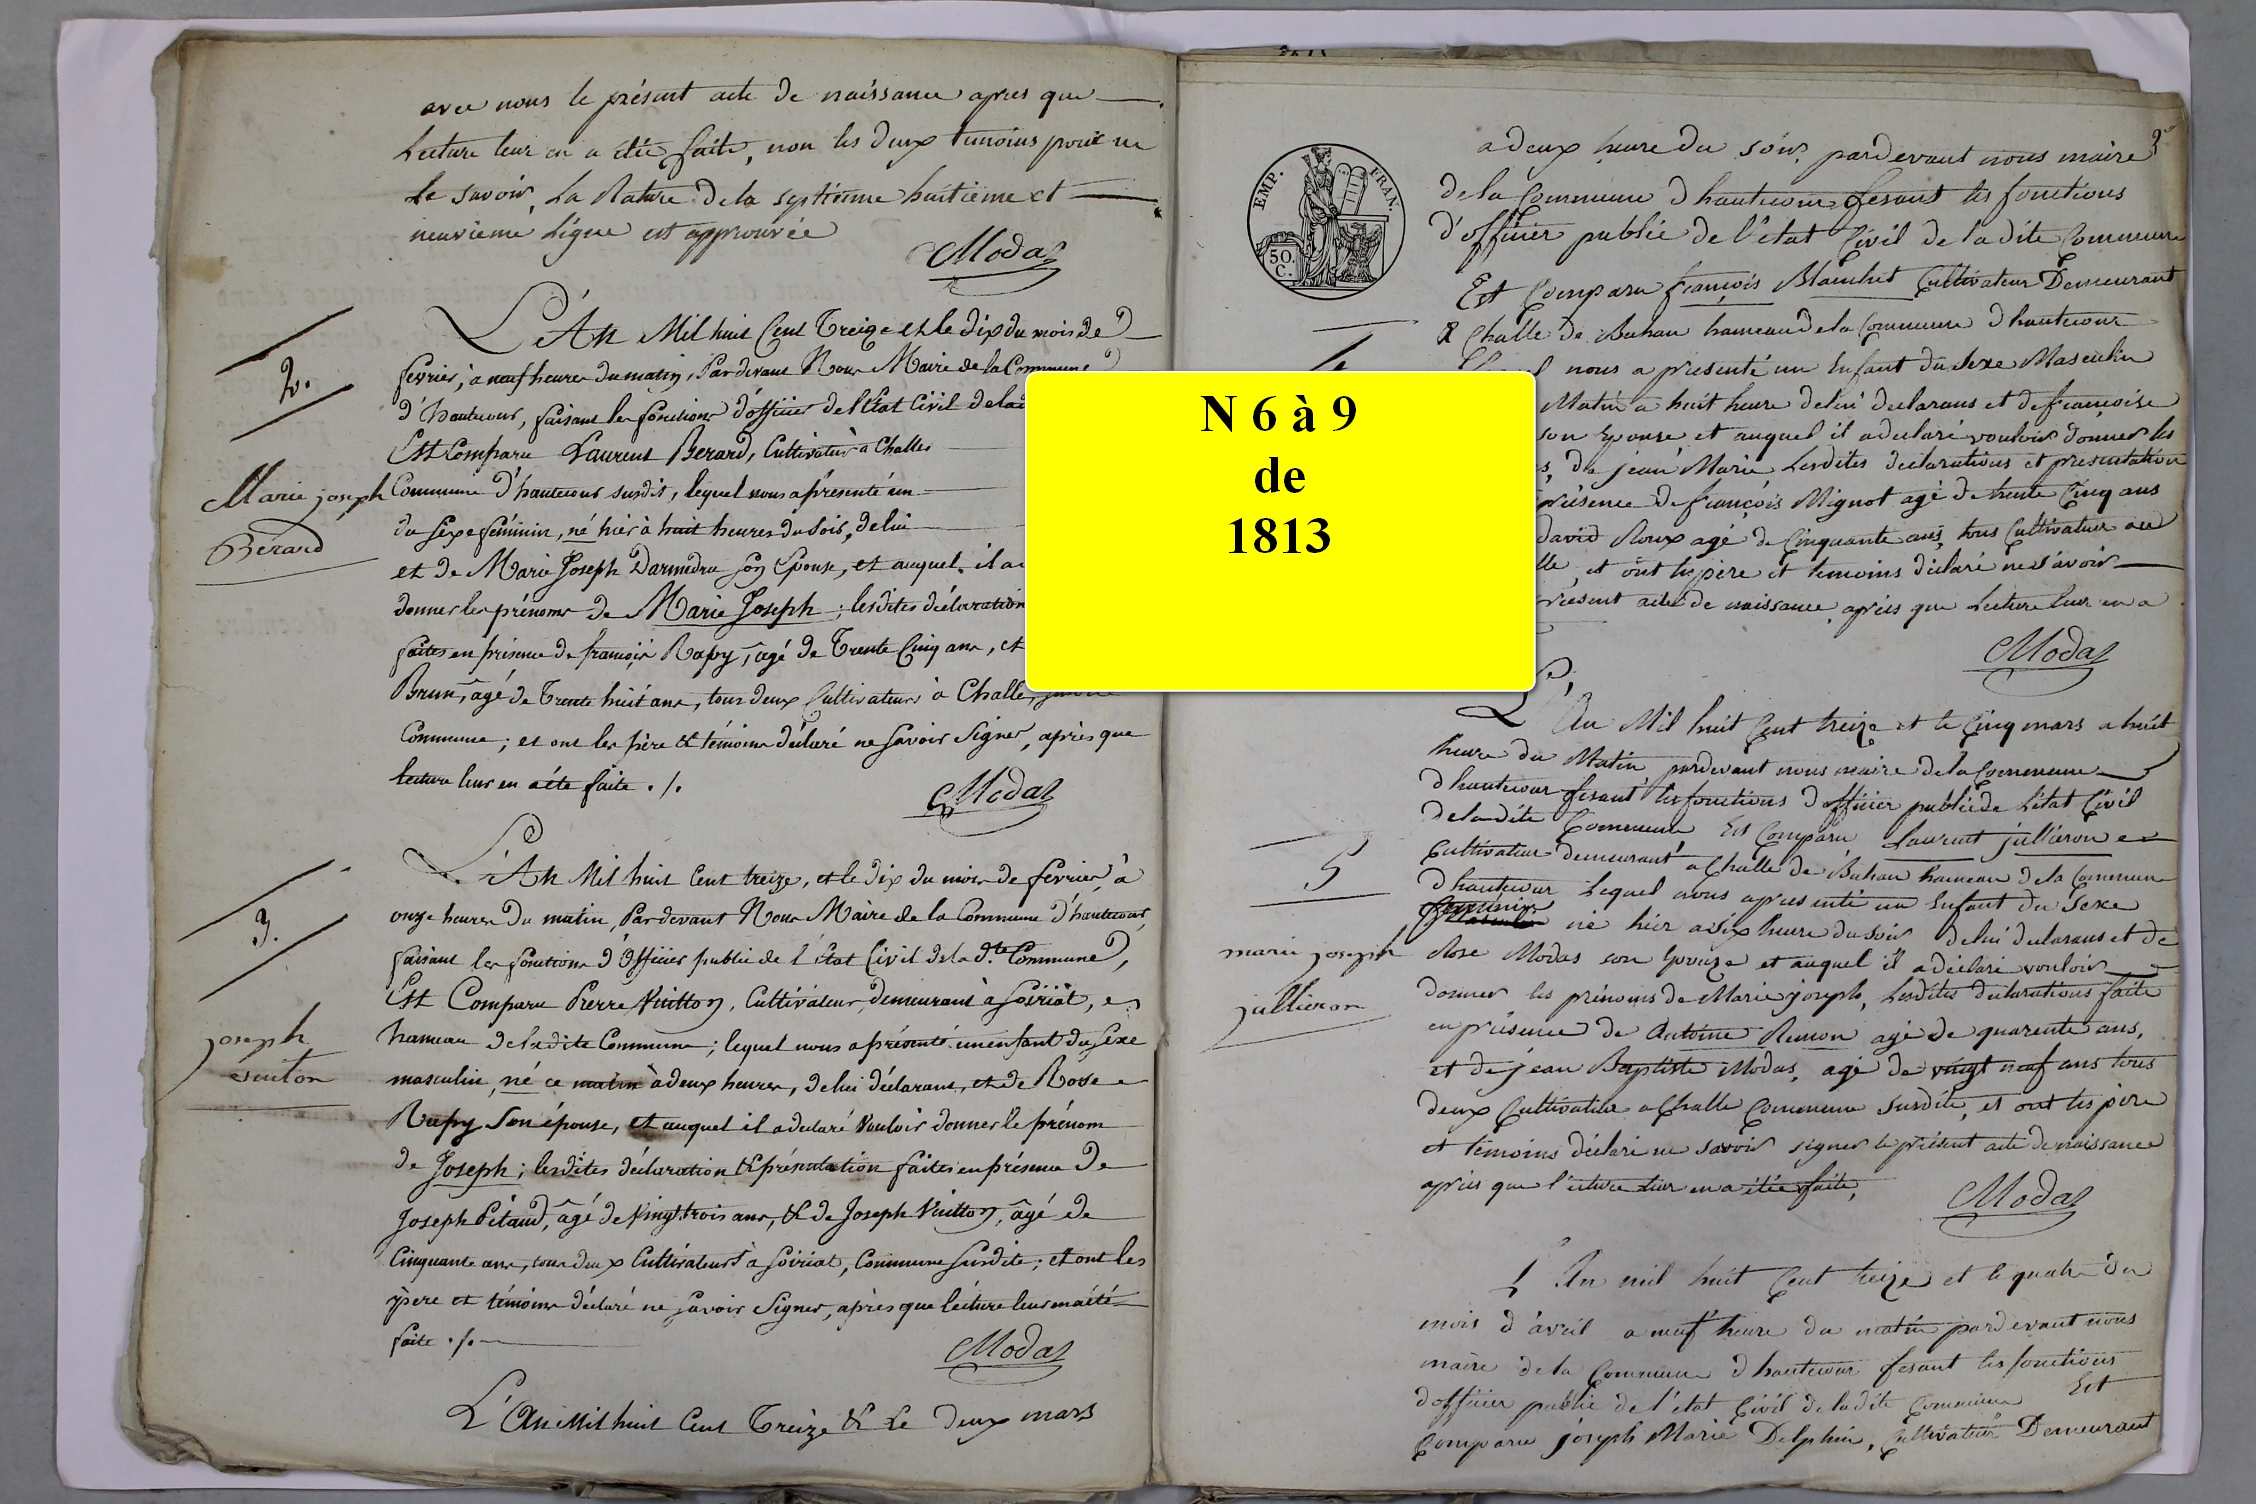 avec nous le présent acte de naissance apres que
Lecture leur en a étée faite, non les deux temoins pour ne
Le savoir, La Rature de la septieme huitieme et
neuvieme Ligne est approuvée
Modas
2.
Marie joseph
Bérard
L'An Mil huit Cent Treize et le dix du mois de
fevrier, à neuf heures du matin, Pardevant Nous Maire de la Commune
d'hautecour, faisant les fonctions d'officier de l'Etat Civil de la
Est Comparu Laurent Berard, Cultivateur à Challes
Commune d'hautecour susdit, lequel nous a présenté un
du sexe féminin, né hier à huit heures du soir, de lui
et de Marie Joseph Darmedru son Epouse, et auquel il a
donner les prénoms de Marie Joseph; lesdites déclaration
faites en présence de françois Rapy, âgé de Trente Cinq ans, et
Brun, âgé de Trente huit ans, tous deux Cultivateurs à Challe,
Commune; et ont les père et témoins déclaré ne savoir signer, après que
lecture leur en a été faite ./.
Modas
3.
joseph
vuiton
L'An Mil huit Cent treize, et le dix du mois de fevrier, à
onze heures du matin, Pardevant Nous Maire de la Commune d'hautecour,
faisant les fonctions d'Officier public de l'état Civil de la dte Commune,
Est Comparu Pierre Vuitton, Cultivateur, demeurant à Soiriat,
hameau de ladite Commune; lequel nous a présenté un enfant du sexe
masculin, né ce matin à deux heures, de lui déclarant, et de Rose
Rapy son épouse, et auquel il a déclaré vouloir donner le prénom
de Joseph; lesdites déclaration & présentation faites en présence de
Joseph Pitaud, âgé de vingt trois ans, & de Joseph Vuitton, âgé de
Cinquante ans, tous deux Cultivateurs à Soiriat, Commune susdite; et ont les
père et témoins déclaré ne savoir signer, après que lecture leur en a été
faite ./.
Modas
L'An Mil huit Cent Treize & Le Deux mars
EMP. FRAN.
50.
C.
a deux heure du soir, pardevant nous maire
de la Commune d hautecour fesant les fonctions
d'officier public de l'état Civil de la dite Commune
Est Comparu françois Blanchet Cultivateur Demeurant
a Challe de Bohan hameau de la Commune d hautecour
nous a présenté un Enfant du sexe Masculin
Matin a huit heure de lui declarant et de françoise
son Epouse et auquel il a declaré vouloir donner les
de jean Marie Lesdites declarations et presentation
présence de françois Mignot agé de trente Cinq ans
david Roux agé de Cinquante ans, tous Cultivateur
et ont les père et temoins déclaré ne savoir
présent acte de naissance, après que Lecture leur en a
Modas
N 6 à 9
de
1813
5
marie joseph
jullieron
L'An Mil huit Cent treize et le Cinq mars a huit
heure du Matin pardevant nous maire de la Commune
d hautecour fesant les fonctions d officier public de l'état Civil
de la dite Commune Est Comparu Laurent jullieron
Cultivateur demeurant a Challe de Bohan hameau de la Commune
d hautecour Lequel nous a présenté un Enfant du sexe
feminin né hier a six heure du soir de lui declarant et de
Rose Modas son Epouze et auquel il a déclaré vouloir
donner les prénoms de Marie joseph, Lesdites declarations faite
en présence de Antoine Renon agé de quarente ans,
et de jean Baptiste Modas, agé de vingt neuf ans tous
deux Cultivateur a Challe Commune susdite, et ont les père
et temoins déclaré ne savoir signer le présent acte de naissance
après que l'ecture leur en a étée faite,
Modas
L'An mil huit Cent treize et le quatre du
mois d'avril a neuf heure du matin pardevant nous
maire de la Commune d hautecour fesant les fonctions
d officier public de l'état Civil de la dite Commune Est
Comparu joseph Marie Delphin, Cultivateur Demeurant